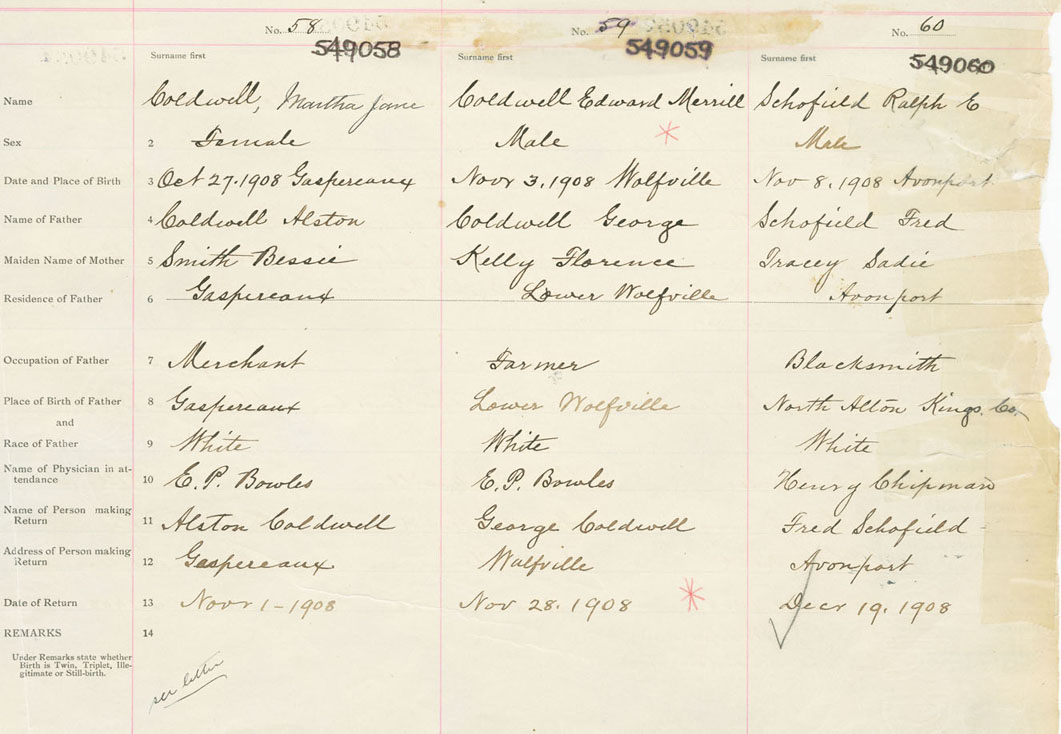 No. 58 No. 59 No. 60
549058 549059 549060
Surname first Surname first Surname first
Name Coldwell, Martha Jane Coldwell Edward Merrill Schofield Ralph E
Sex 2 Female Male Male
Date and Place of Birth 3 Oct 27.1908 Gaspereaux Novr 3.1908 Wolfville Nov 8.1908 Avonport
Name of Father 4 Coldwell Alston Coldwell George Schofield Fred
Maiden Name of Mother 5 Smith Bessie Kelly Florence Tracey Sadie
Residence of Father 6 Gaspereaux Lower Wolfville Avonport
Occupation of Father 7 Merchant Farmer Blacksmith
Place of Birth of Father 8 Gaspereaux Lower Wolfville North Alton Kings. Co.
and
Race of Father 9 White White White
Name of Physician in at-
tendance 10 E.P. Bowles E.P. Bowles Henry Chipman
Name of Person making
Return 11 Alston Coldwell George Coldwell Fred Schofield
Address of Person making
Return 12 Gaspereaux Wolfville Avonport
Date of Return 13 Novr 1-1908 Nov 28.1908 Decr 19.1908
REMARKS 14
Under Remarks state whether
Birth is Twin, Triplet, Ille-
gitimate or Still-birth.
see letter